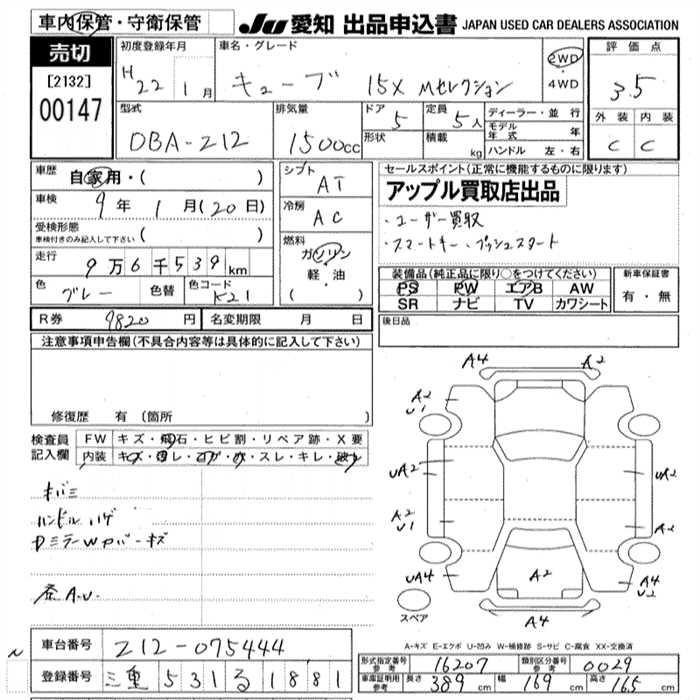 車内保管・守衛保管
JU 愛知 出品申込書 JAPAN USED CAR DEALERS ASSOCIATION
売切
[2132]
00147
初度登録年月
H22 1月
車名・グレード
キューブ 15X Mセレクション
2WD
4WD
評価点
3.5
外装 内装
C C
型式
DBA-Z12
排気量
1500cc
ドア 5
形状
定員 5人
積載 kg
ディーラー・並行
モデル年式 年
ハンドル 左・右
車歴
自家用・( )
車検
9年1月(20日)
受検形態
車検付きのみ記入して下さい ( )
走行
9万6千539km
色 グレー 色替 色コード K21
シフト
AT
冷房
AC
燃料
ガソリン
軽・油
( ・ )
セールスポイント(正常に機能するものに限ります)
アップル買取店出品
・ユーザー買取
・スマートキー、プッシュスタート
装備品(純正品に限り○をつけてください)
PS PW エアB AW
SR ナビ TV カワシート
新車保証書
有・無
R券 9820円 名変期限 月 日
後日品
注意事項申告欄(不具合内容等は具体的に記入して下さい)
修復歴 有 (箇所 )
検査員記入欄
FW キズ・飛石・ヒビ割・リペア跡・X要
内装 キズ・コゲ・スレ・キレ
キバミ
ハンドルハゲ
DミラーWカバーキズ
A.U.
A4 A2
A2
U1
UA2 UA2
A2
U1
A2
UA4 A2 A4
U2
A4
スペア
A-キズ E-エクボ U-凹み W-補修跡 S-サビ C-腐食 XX-交換済
車台番号 Z12-075444
登録番号 三重 531 る 1881
型式指定番号 参考 16207 類別区分番号 参考 0029
車庫証明用 参考 長さ 389cm 幅 169cm 高さ 165cm